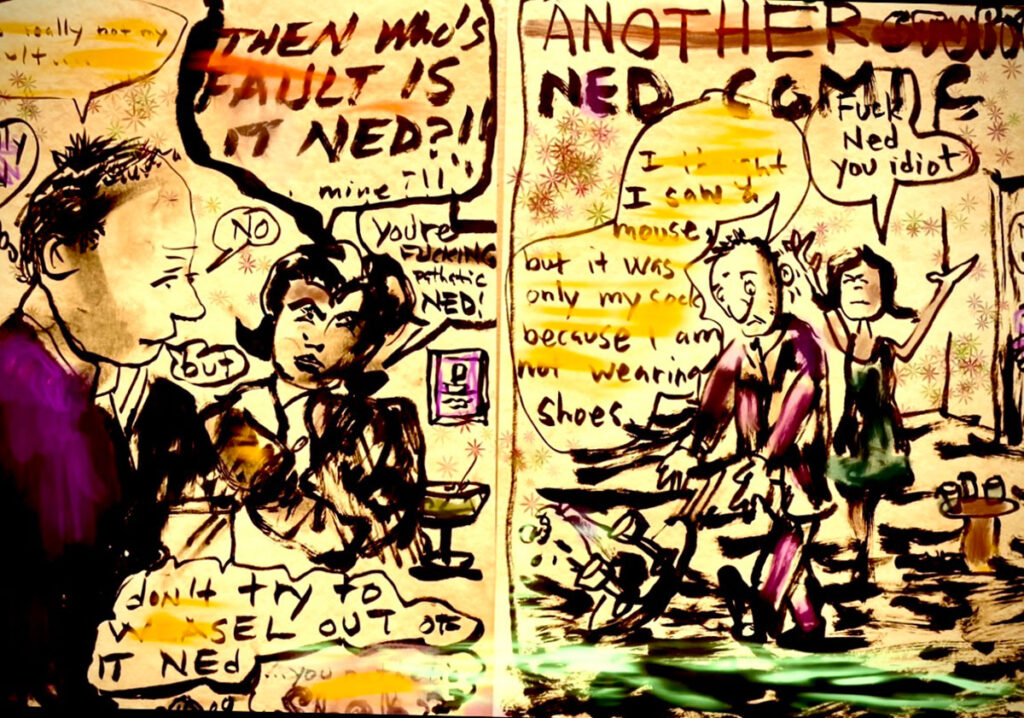 really not my
THEN WHO'S
FAULT IS
IT NED?!!
mine?!!!
NO
you're
FUCKING
pathetic
NED!
but
don't try to
WEASEL OUT OF
IT NED
ANOTHER
NED COMIC
Fuck
Ned
you idiot
I thought
I saw a
mouse
but it was
only my sock
because I am
not wearing
shoes.